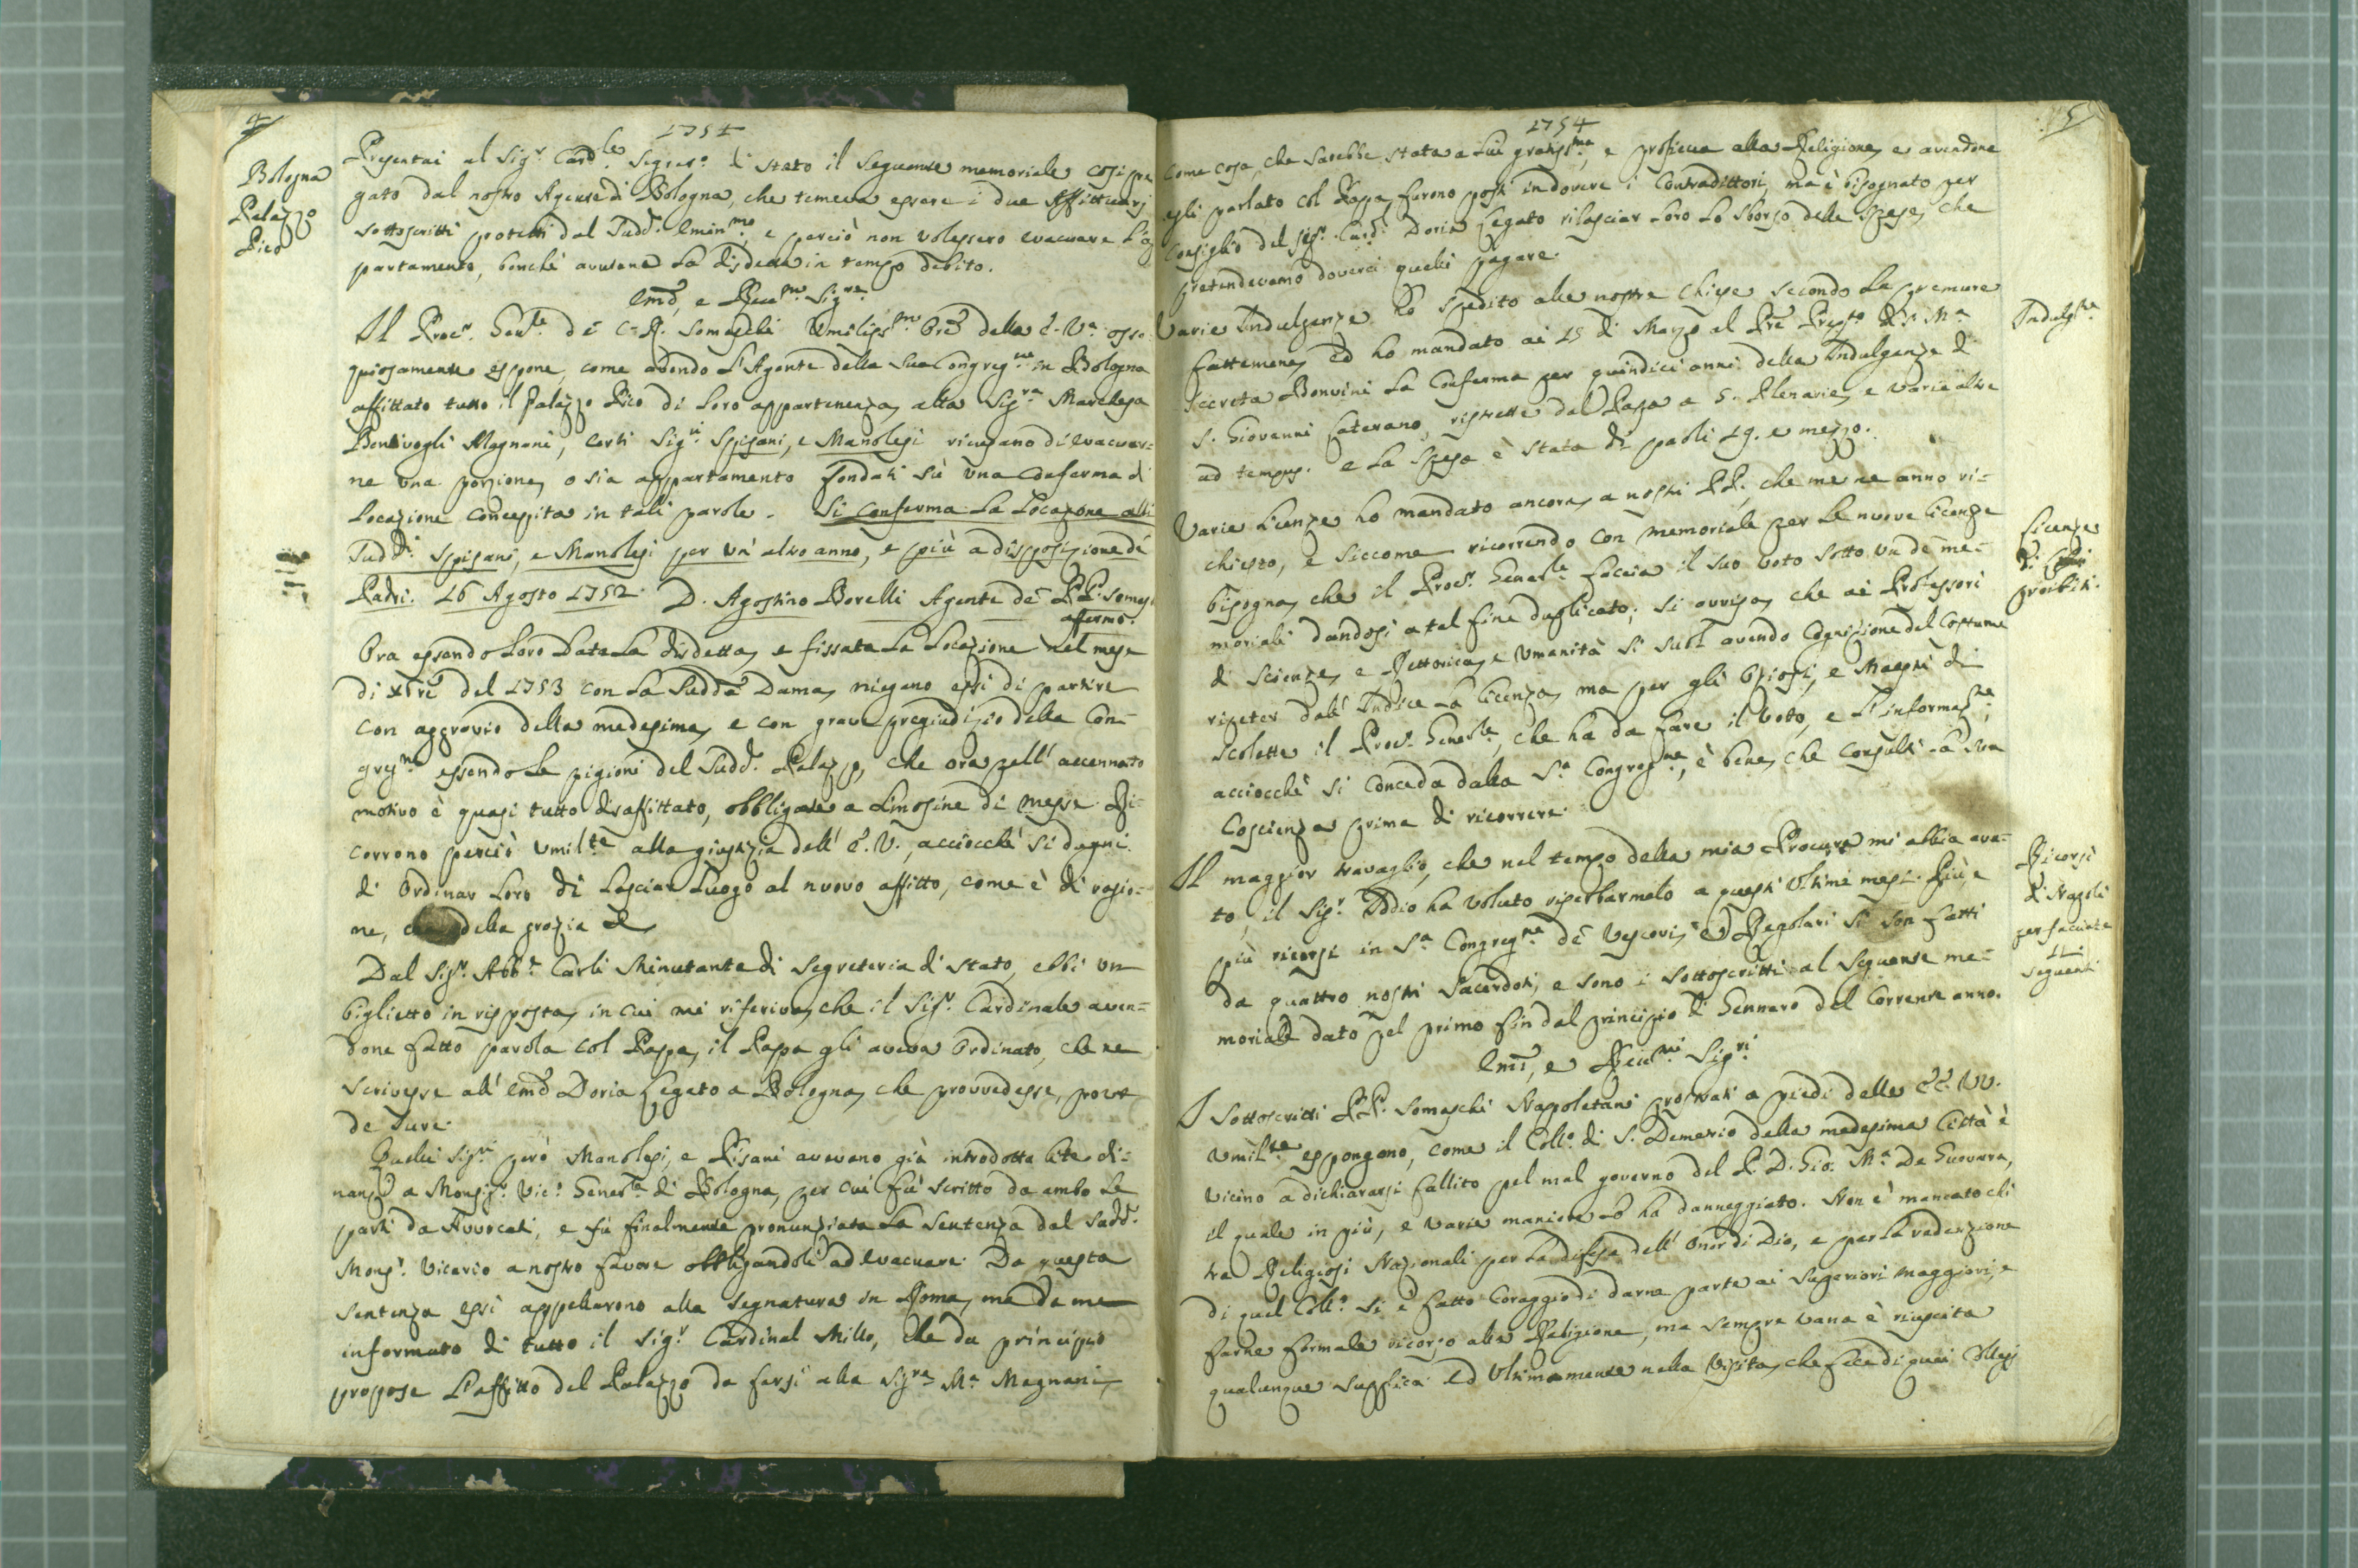 4
1754
Bologna
Palazzo
Pico
Presentai al Sig.r Card.le Segret.o di Stato il seguente memoriale così pre
gato dal nostro Agente di Bologna, che temeva essere i due Affittuarj
sottoscritti protetti dal Sudd.o Emin.mo, e perciò non volessero evacuare l'ap
partamento, benchè avutone la disdetta in tempo debito.
Emo, e Rev.mo Sig.re
Il Proc.r Gen.le de C. R. Somaschi Umiliss.mo Ore della E. V.a osse
quiosamente espone, come avendo l'Agente della sua Congreg.ne in Bologna
affittato tutto il Palazzo Pico di loro appartenenza alla Sig.ra Marchesa
Bentivogli Magnani, certi Sig.ri Spisani, e Manolesi ricusano di evacuar=
ne una porzione, o sia appartamento fondati sù una conferma di
Locazione concepita in tali parole. Si conferma la Locazione alli
Sudd.i Spisani, e Manolesi per un' altro anno, e più a disposizione de
Padri. 16 Agosto 1752. D. Agostino Borelli Agente de PP. Somas.
affermo.
Ora essendo loro data la disdetta, e fissata la Locazione nel mese
di xbre del 1753 con la Sudda Dama, niegano essi di partire
con aggravio della medesima, e con grave pregiudizio della Con=
greg.ne essendo le pigioni del Sudd.o Palazzo, che ora pell' accennato
motivo è quasi tutto disaffittato, obbligate a limosine di messe. Ri=
corrono perciò umil.te alla giustizia dell' E. V., acciocchè si degni
di ordinar loro di lasciar luogo al nuovo affitto, come è di ragio=
ne, che della grazia &
Dal Sig.r Abb.e Carli Minutante di Segreteria di Stato, ebbi un
biglietto in risposta, in cui mi riferiva, che il Sig.r Cardinale aven=
done fatto parola col Papa, il Papa gli aveva ordinato, che ne
scrivesse all' Emo Doria Legato a Bologna, che provvedesse, prout
de Jure.
Quelli Sig.ri però Manolesi, e Pisani avevano già introdotta lite di=
nanzi a Monsig.r Vic.o General.e di Bologna, per cui fu scritto da ambo le
parti da Avvocati, e fu finalmente pronunziata la sentenza dal Sudd.o
Mons.r Vicario a nostro favore obbligandoli ad evacuare. Da questa
sentenza essi appellarono alla Segnatura in Roma, ma da me
informato di tutto il Sig.r Cardinal Millo, che da principio
propose l'affitto del Palazzo da farsi alla Sig.ra M.a Magnani,
5
1754
come cosa, che sarebbe stata a lui gratiss.ma, e proficua alla Religione, e avendone
egli parlato col Papa, furono posti in dovere i Contradittori, ma è bisognato per
consiglio del Sig.r Card.l Doria Legato rilasciar loro lo sborso delle spese, che
pretendevamo doverci quelli pagare.
Indulg.ze
Varie Indulgenze ho spedito alle nostre Chiese secondo le premure
fattemene, ed ho mandato ai 15 di Marzo al Pre Prep.to di S. M.a
Secreta Bonvini la Conferma per quindici anni della Indulgenza di
S. Giovanni Laterano, ristrette dal Papa a 5. Plenarie, e varie altre
ad tempus. e la spesa è stata di paoli 19. e mezzo.
Licenze
di
proibiti.
Varie licenze ho mandato ancora, a nostri PP. che me ne anno ri=
chiesto, e siccome ricorrendo con memoriale per le nuove licenze
bisogna, che il Proc.r General.e faccia il suo voto sotto un de me=
moriali dandosi a tal fine duplicato; si avvisa, che ai Professori
di scienze, e Rettorica, e umanità si suol avendo Cognizione del Costume
ripeter dall' Indice la licenza, ma per gli oziosi, e Maestri di
scolette il Proc.r General.e, che ha da fare il voto, e l'informaz.ne,
acciocchè si conceda dalla S.a Congreg.ne, è bene, che consulti la sua
Coscienza prima di ricorrere.
Ricorsi
di Napoli
per facciate
11
seguenti
Il maggior travaglio, che nel tempo della mia Procura mi abbia avu=
to, il Sig.r Iddio ha voluto riserbarmelo a questi ultimi mesi. Più, e
più ricorsi in S.a Congreg.ne de Vescovi, e Regolari si son fatti
da quattro nostri Sacerdoti, e sono i sottoscritti al seguente me=
moriale dato pel primo fin dal principio di Gennaro del corrente anno.
Emi, e Rev.mi Sig.ri
I sottoscritti PP. Somaschi Napoletani prostrati a piedi delle EE. VV.
umil.te espongono, come il Coll.o di S. Demetrio della medesima Città è
vicino a dichiararsi fallito pel mal governo del P. D. Gio. M.a De Guevara,
il quale in più, e varie maniere lo ha danneggiato. Non è mancato chi
tra Religiosi Nazionali per la difesa dell' onor di Dio, e per la redenzione
di quel Coll.o si è fatto coraggio di darne parte ai Superiori maggiori, e
farne formale ricorso alla Religione, ma sempre vana è riuscita
qualunque supplica. Ed ultimamente nella Visita, che fece di quei Collegj